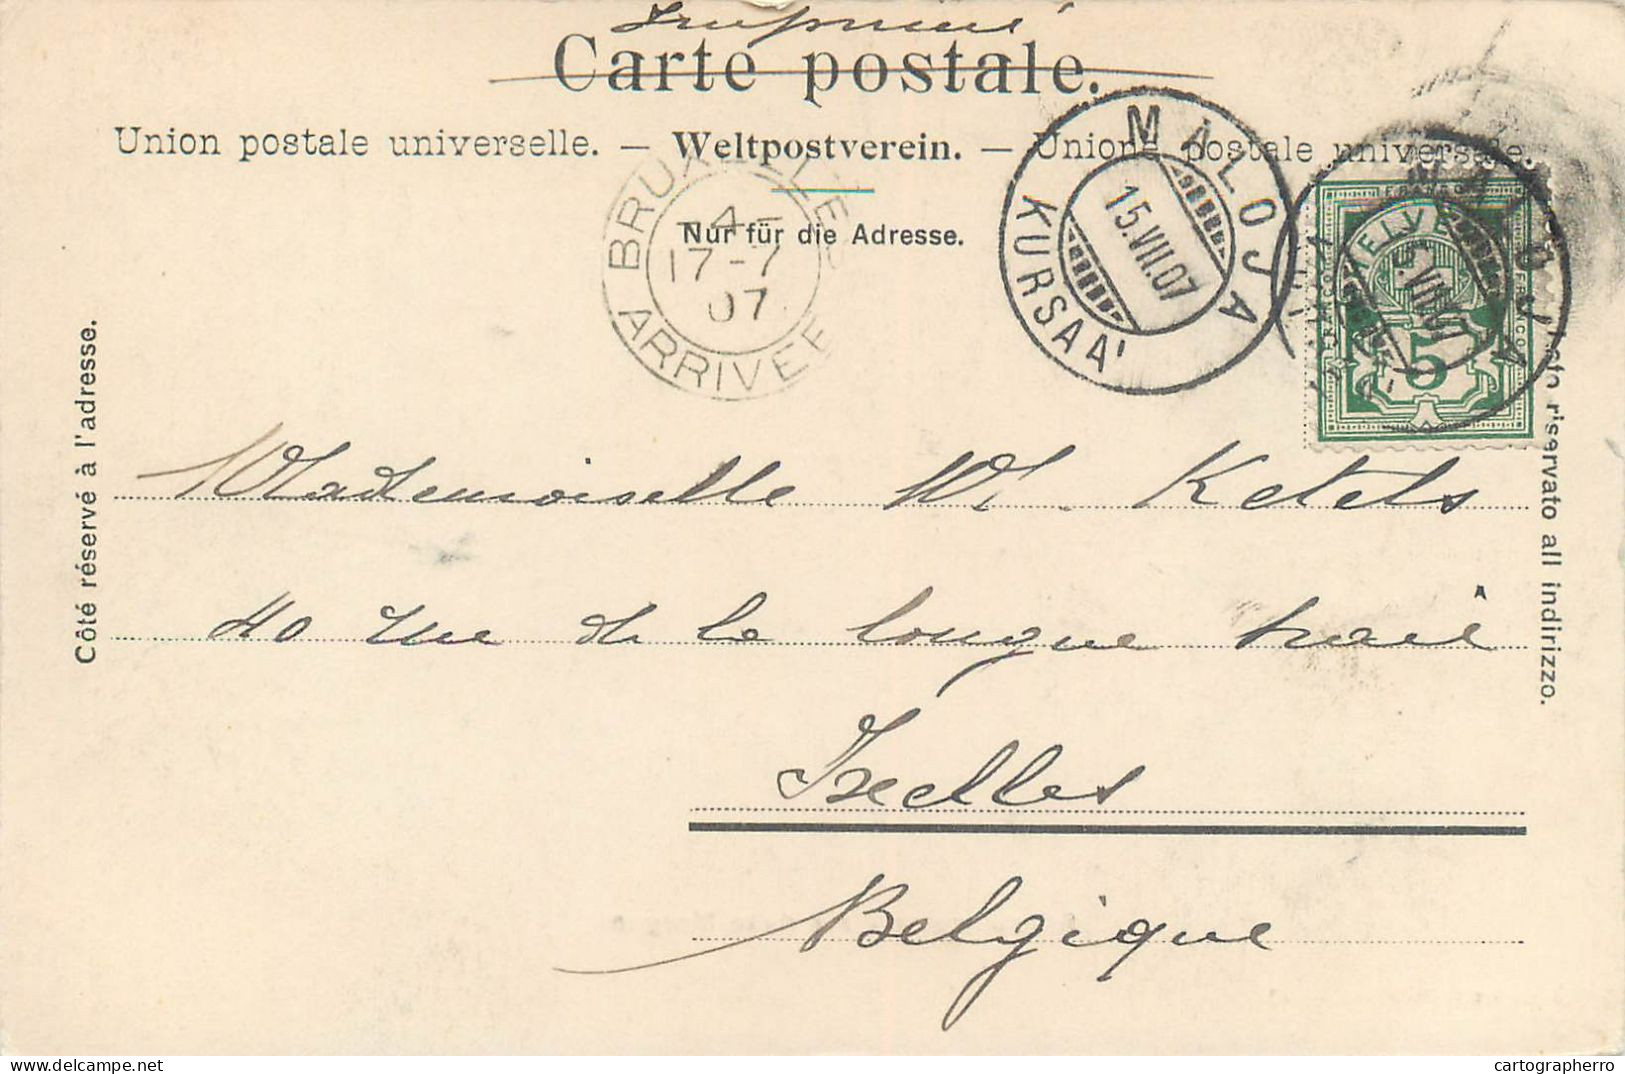 Imprimé
Carte postale.
Union postale universelle. — Weltpostverein. — Unione postale universale.
Nur für die Adresse.
BRUXELLES
4-
17-7
07
ARRIVEE
MALOJA
15.VII.07
KURSAAL
MALOJA
15.VII.07
KURSAAL
HELVETIA
FRANCO
5
Côté réservé à l'adresse.
Lato riservato all indirizzo.
Mademoiselle W. Ketels
40 rue de la longue haie
Ixelles
Belgique
cartographerro